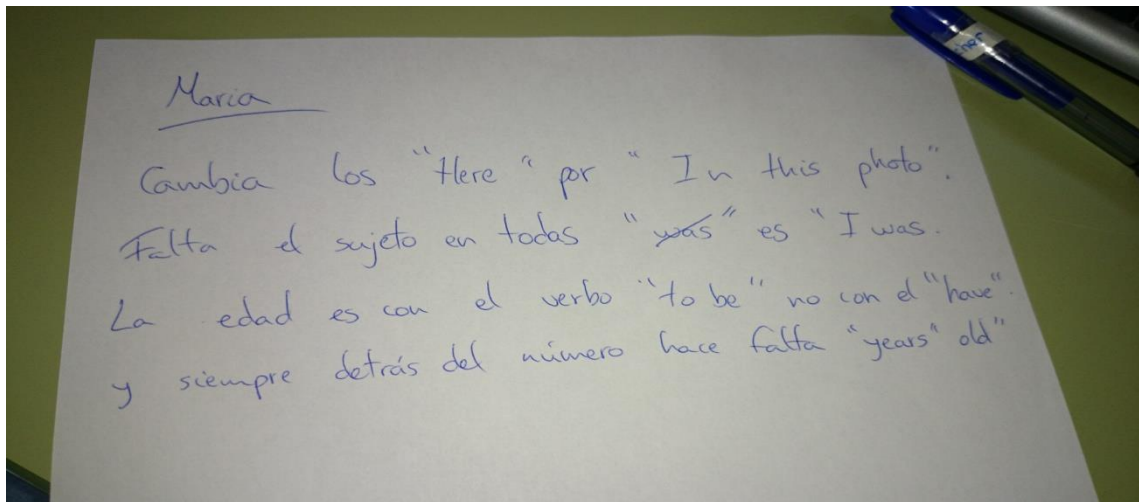 Maria
Cambia los "Here" por "In this photo".
Falta el sujeto en todas "was" es "I was.
La edad es con el verbo "to be" no con el "have".
y siempre detrás del número hace falta "years" old"